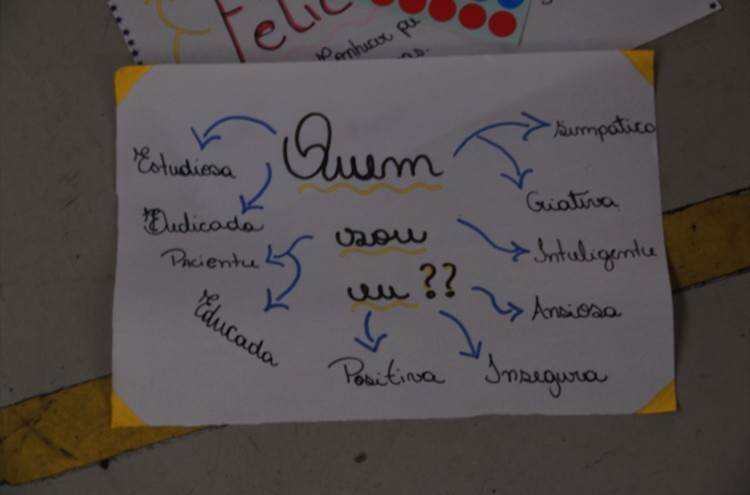 Felic
Quem
sou
eu ??
Estudiosa
Dedicada
Paciente
Educada
Simpática
Criativa
Inteligente
Ansiosa
Insegura
Positiva